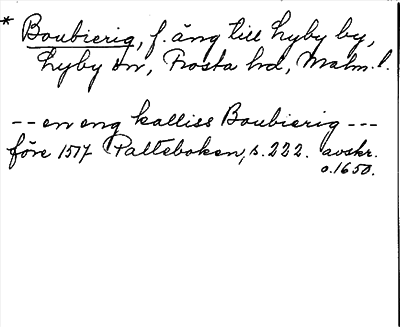 * Boubierig, f. äng till Lyby by,
Lyby sn, Frosta hd, Malm. l.
-- en eng kalliss Boubierig ---
före 1517 Palteboken, s. 222. avskr.
o. 1650.